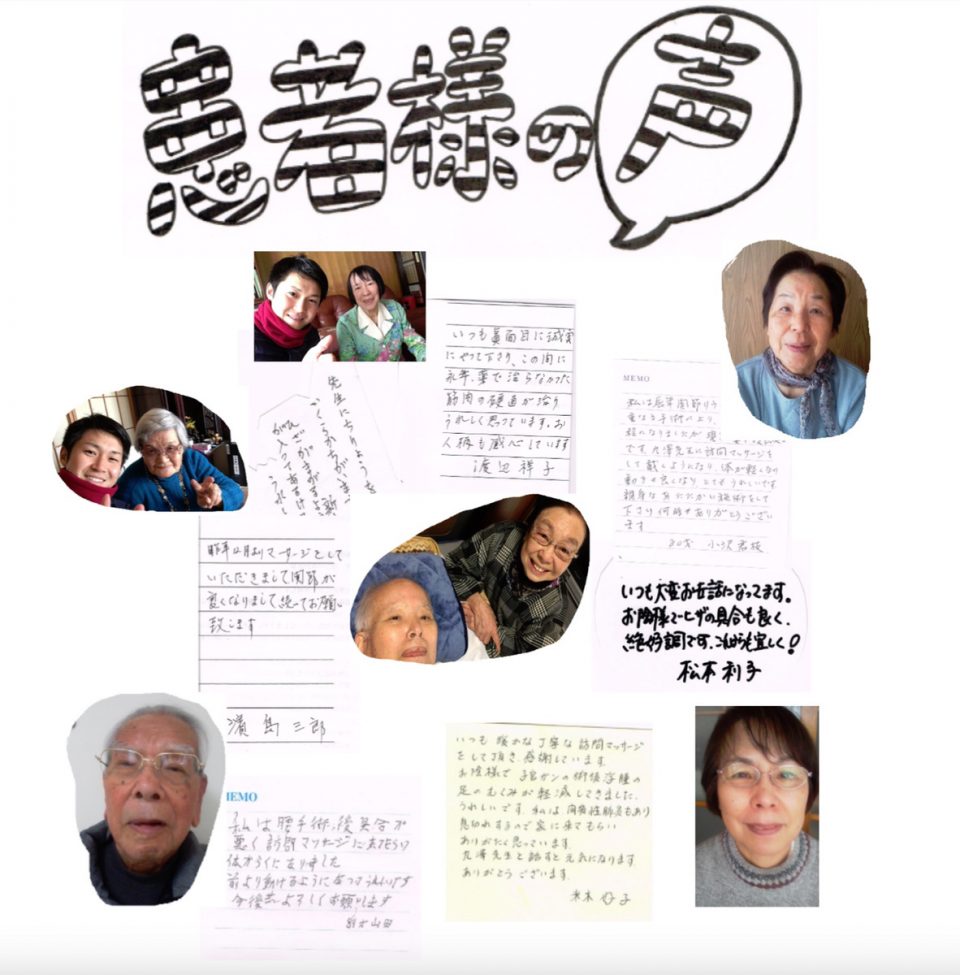 患者様の声
いつも真面目に誠実
にやって下さり、この間に
永年、薬で治らなかった
筋肉の硬直が溶り
うれしく思っています、お
人柄も感心しています
渡辺祥子
MEMO
私は長年関節リウ
重なる手術により、
です。
訪問マッサージを
して戴くようになり、体が軽くなり
動きも良くなり とてもうれしいです
親身なあたたかい施術をして
下さり何時もありがとうござい
ます
先生に
昨年4月よりマッサージをして
いただきまして関節が
良くなりまして続いてお願い
致します
濱島三郎
いつも大変お世話になってます。
お陰様でヒザの具合も良く、
絶好調です、これからも宜しく!
松本利子
MEMO
私は腰手術、後具合が
悪く訪問マッサージに来てもらい
体がらくになりました
前より動けるようになってうれしいです
今後共よろしくお願いします
いつも 暖かな丁寧な訪問マッサージ
をして頂き、感謝しています。
お陰様で 子宮ガンの術後浮腫の
足のむくみが軽減してきました。
うれしいです。私は 間質性肺炎もあり
息切れするので家に来てもらい
ありがたく思っています。
先生と話すと元気になります
ありがとうございます。